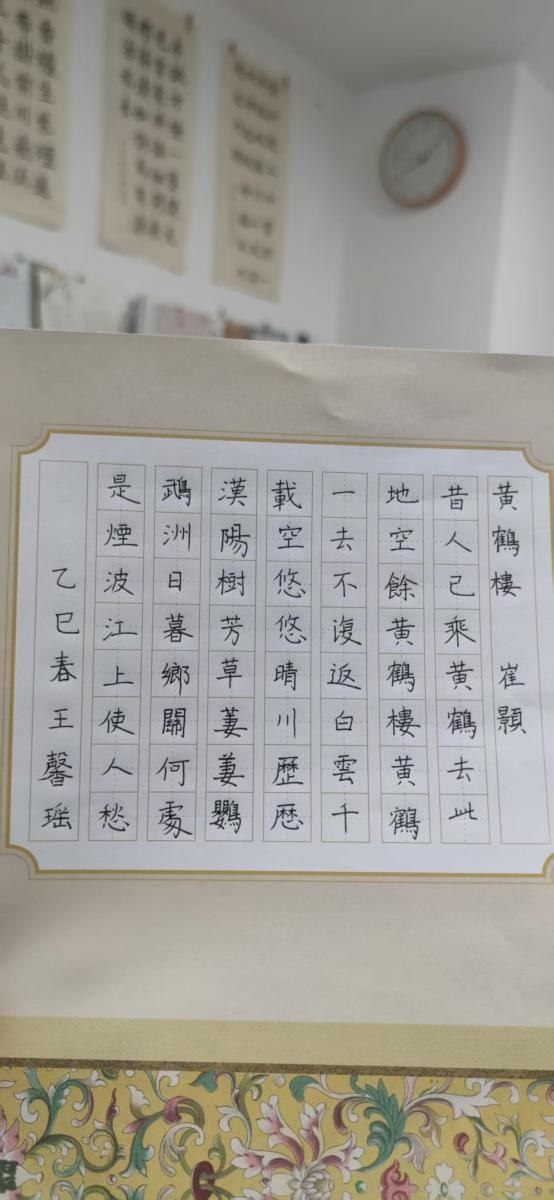 黃鶴樓 崔顥
昔人已乘黃鶴去此
地空餘黃鶴樓黃鶴
一去不復返白雲千
載空悠悠晴川歷歷
漢陽樹芳草萋萋鸚
鵡洲日暮鄉關何處
是煙波江上使人愁
乙巳春王馨瑶